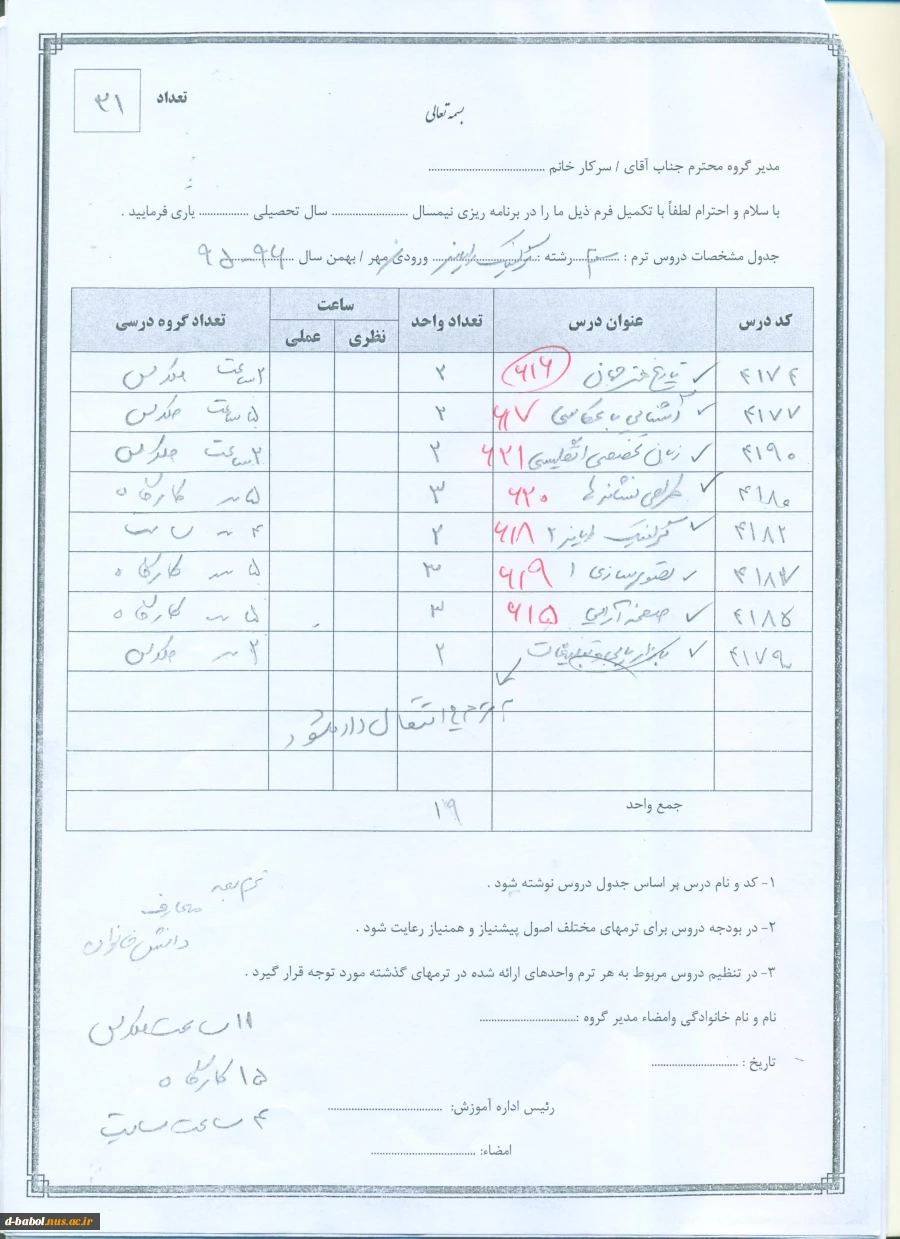 تعداد ۳۱
بسمه تعالی
مدیر گروه محترم جناب آقای / سرکار خانم ........................................
با سلام و احترام لطفاً با تکمیل فرم ذیل ما را در برنامه ریزی نیمسال ........................ سال تحصیلی ................ یاری فرمایید .
جدول مشخصات دروس ترم : رشته : ورودی مهر / بهمن سال ۹۶-۹۵
کد درس عنوان درس تعداد واحد ساعت تعداد گروه درسی
نظری عملی
۴۱۷۴ تاریخ هنر جهان ۶۱۶ ۲ ۲ ساعت کلاس
۴۱۷۷ آشنایی با عکاسی ۶۱۷ ۲ ۵ ساعت کلاس
۴۱۹۰ زبان تخصصی انگلیسی ۶۲۱ ۲ ۲ ساعت کلاس
۴۱۸۰ طراحی نشانه ها ۶۲۰ ۳ ۵ کارگاه
۴۱۸۲ گرافیک ۲ ۶۱۸ ۲ ۴ سایت
۴۱۸۷ تصویرسازی ۱ ۶۱۹ ۳ ۵ کارگاه
۴۱۸۵ صفحه آرایی ۶۱۵ ۳ ۵ کارگاه
۴۱۷۹ بازاریابی و تبلیغات ۲ کلاس
انتقال داده شود
جمع واحد ۱۹
۱- کد و نام درس بر اساس جدول دروس نوشته شود .
ترم بعد
معارف
۲- در بودجه دروس برای ترمهای مختلف اصول پیشنیاز و همنیاز رعایت شود .
دانش خانواده
۳- در تنظیم دروس مربوط به هر ترم واحدهای ارائه شده در ترمهای گذشته مورد توجه قرار گیرد .
نام و نام خانوادگی وامضاء مدیر گروه :................................
۱۱ ساعت کلاس
تاریخ : ............................
۱۵ کارگاه
رئیس اداره آموزش: ......................................
۴ ساعت سایت
امضاء: ...................................
d-babol.nus.ac.ir